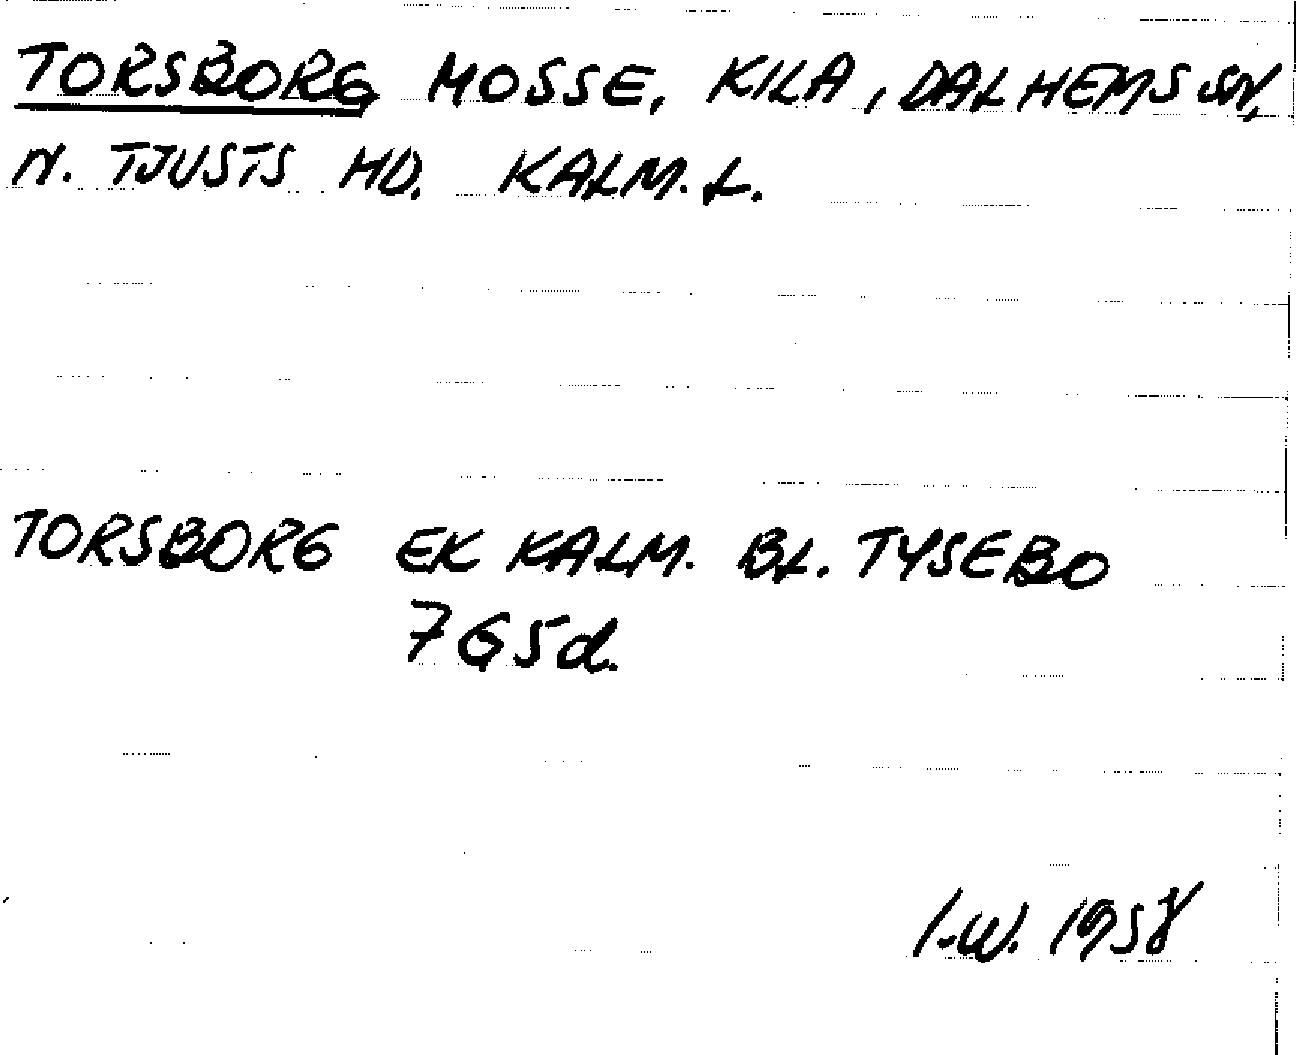 TORSBORG MOSSE, KILA, DALHEMS SN,
N. TJUSTS HD. KALM. L.
TORSBORG EK KALM. BL. TYSEBO
7G5d.
I.W. 1958